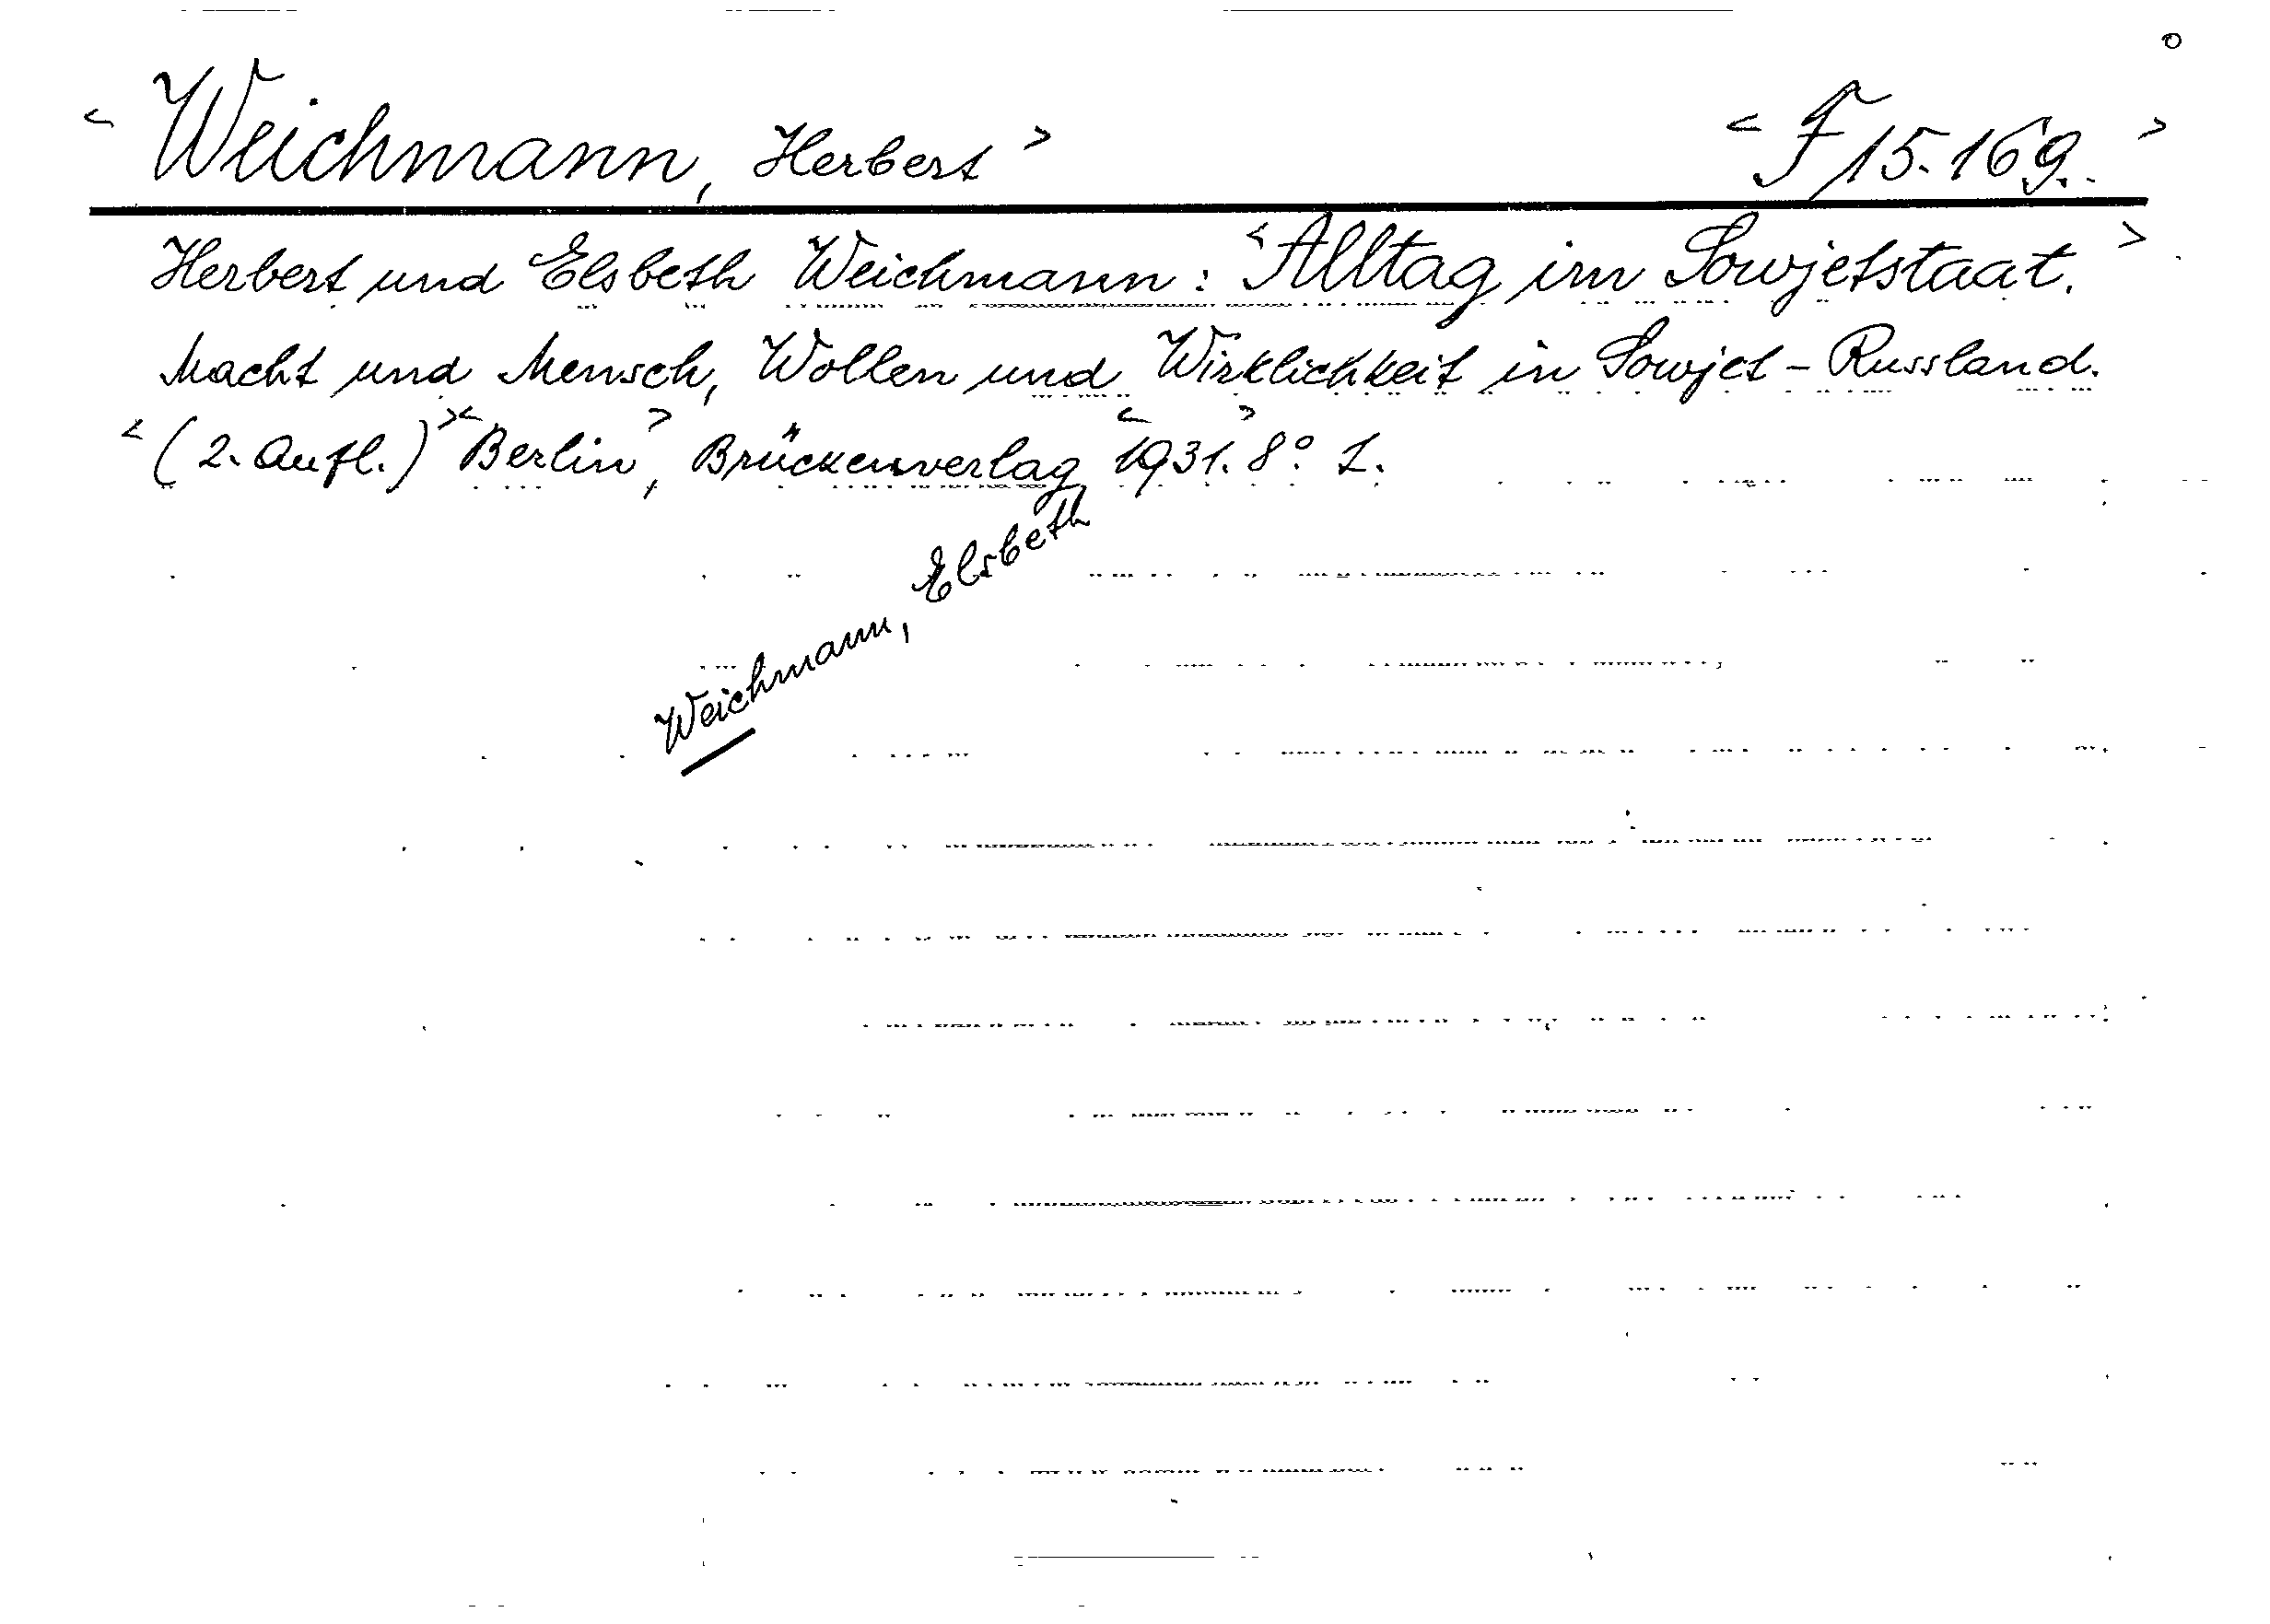 < Weichmann, Herbert > < F 15.169. >
Herbert und Elsbeth Weichmann: < Alltag im Sowjetstaat. >
Macht und Mensch, Wollen und Wirklichkeit in Sowjet-Russland.
< (2. Aufl.) > < Berlin >, Brückenverlag < 1931. > 8° L.
Weichmann, Elsbeth